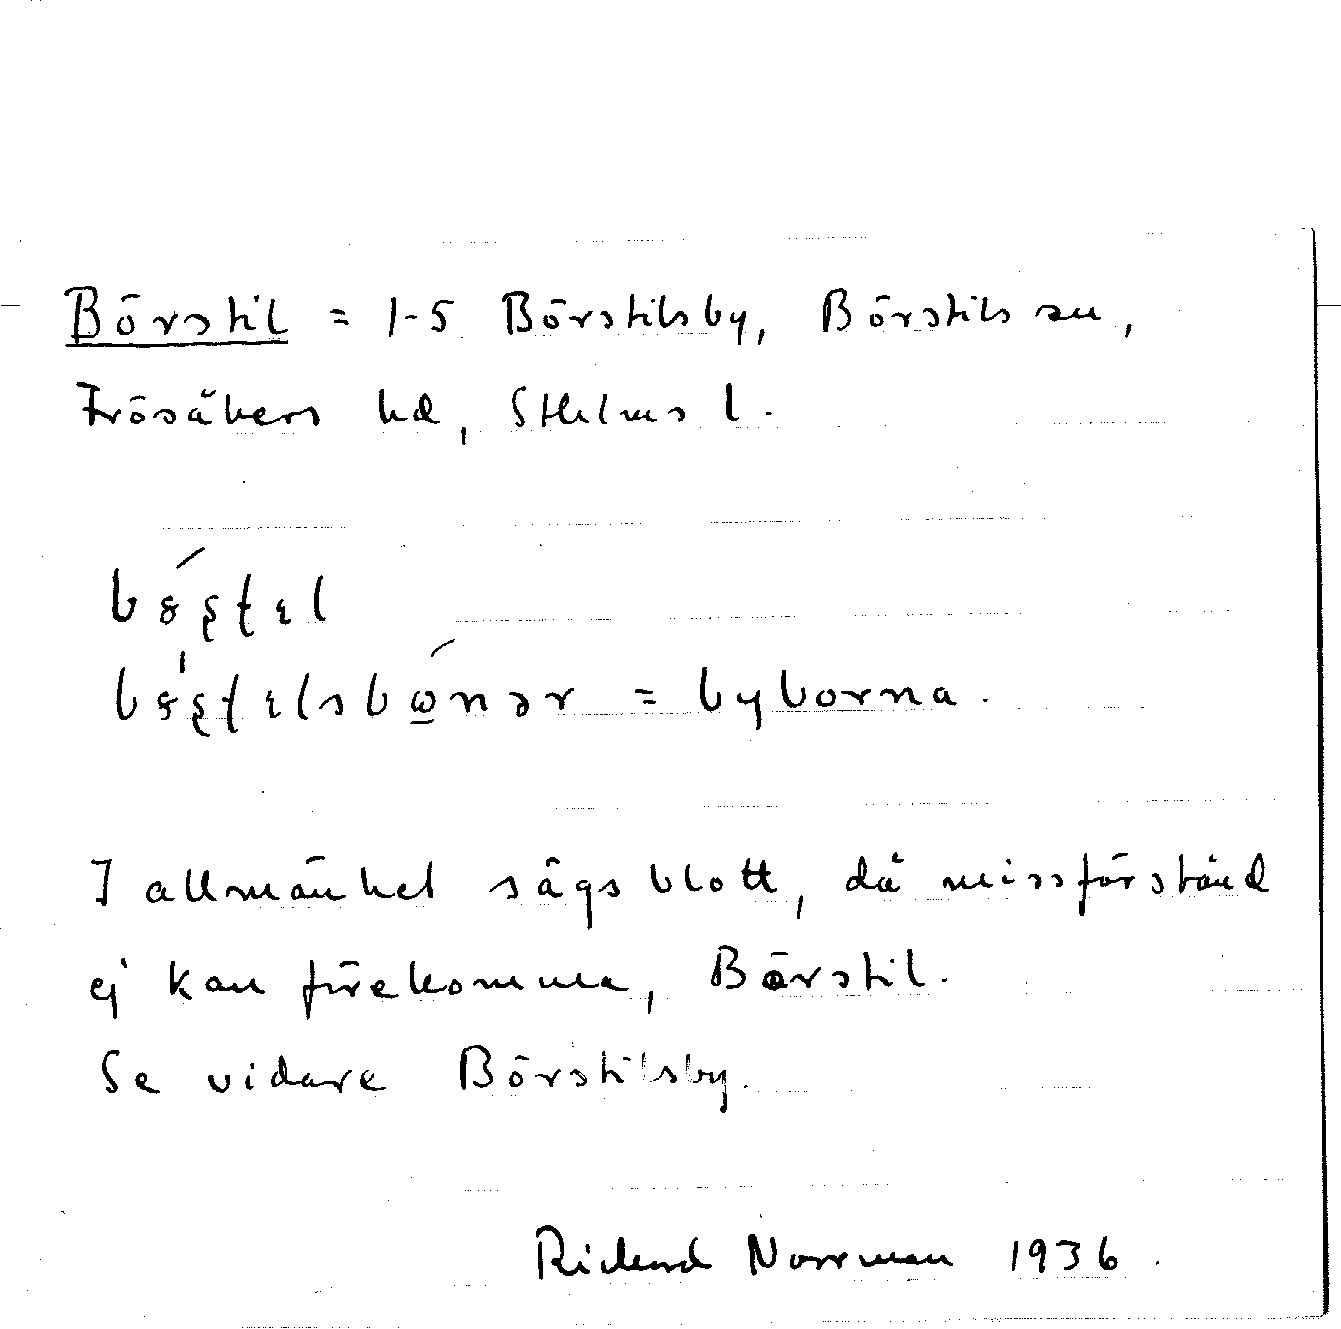 Börstil = 1-5 Börstilsby, Börstils sn,
Frösåkers hd, Sthlms l.
byborna.
I allmänhet sägs blott, då missförstånd
ej kan förekomma, Börstil.
Se vidare Börstilsby.
Rickard Norrman 1936.